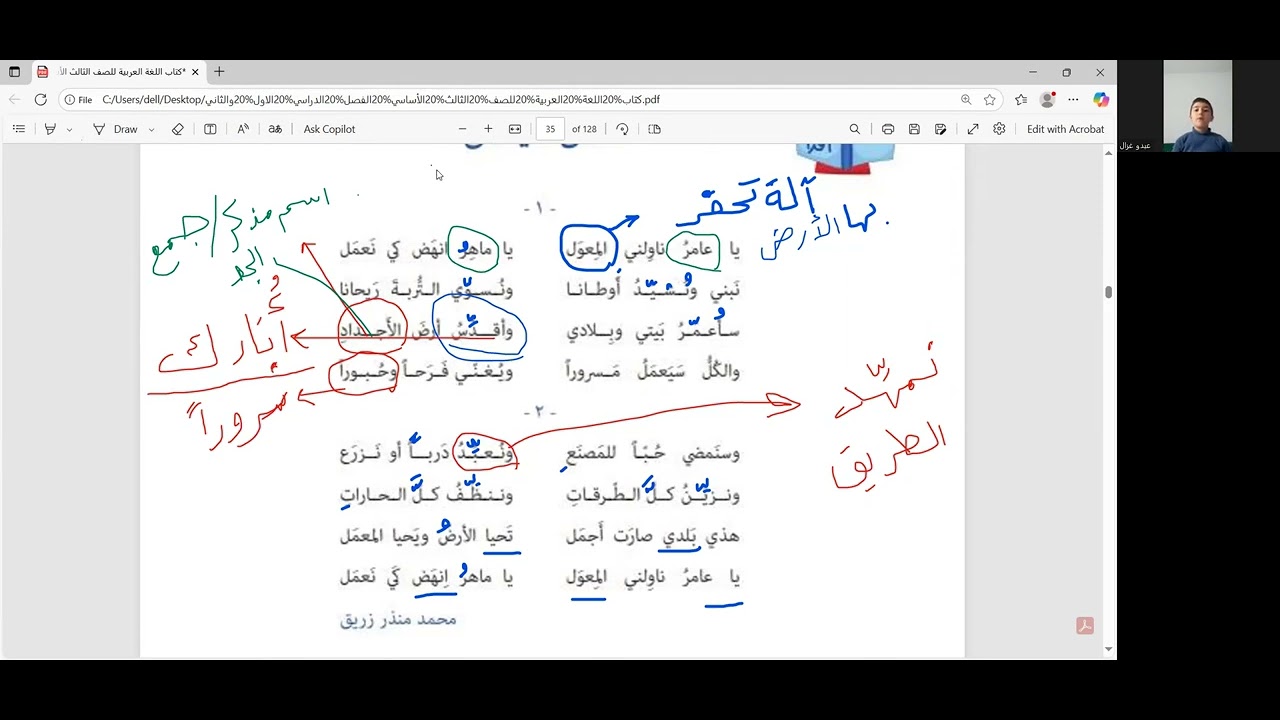 *كتاب اللغة العربية للصف الثالث الأ
File
C:/Users/dell/Desktop/كتاب%20اللغة%20العربية%20للصف%20الثالث%20الأساسي%20الفصل%20الدراسي%20الاول%20والثاني.pdf
Draw
Ask Copilot
35 of 128
Edit with Acrobat
عبدو غزال
اقرأ
اسم مذكر/جمع
الجد
آلة تحفر
بها الأرض
- ١ -
يا عامرُ ناوِلني المِعوَل يا ماهِرُ انهَض كَي نَعمَل
نَبني ونُشيّدُ أوطانا ونُسوّي التُّربةَ رَيحانا
سأُعمّرُ بَيتي وبِلادي وأُقدِّسُ أرضَ الأَجدادِ
والكُلُّ سَيَعمَلُ مَسروراً ويُغنّي فَرَحاً وحُبوراً
أُبارك
سروراً
- ٢ -
وسنَمضي حُبّاً للمَصنَعِ ونُعبّدُ دَرباً أو نَزرَع
ونزيّنُ كلَّ الطّرقاتِ وننظّفُ كلَّ الحاراتِ
هذي بَلدي صارَت أَجمَل تَحيا الأرضُ ويَحيا المعمَل
يا عامرُ ناوِلني المِعوَل يا ماهرُ اِنهَض كَي نَعمَل
محمد منذر زريق
نمهّد
الطريق